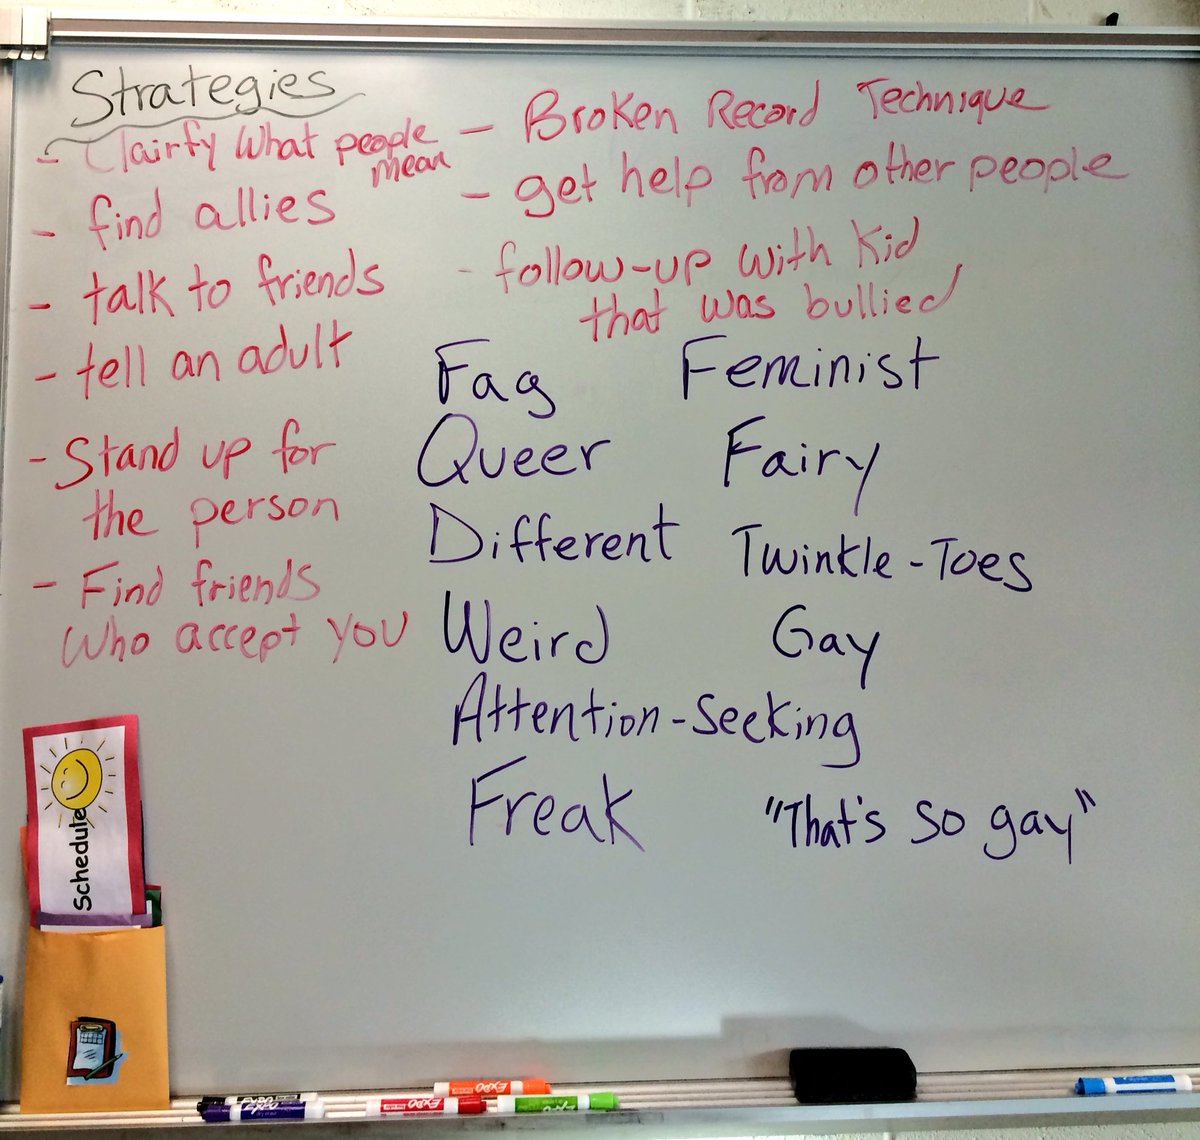 Strategies
- Clairfy What people
mean
- find allies
- talk to friends
- tell an adult
- Stand up for
the person
- Find friends
Who accept you
- Broken Record Technique
- get help from other people
- follow-up with Kid
that was bullied
Fag
Feminist
Queer
Fairy
Different
Twinkle-Toes
Weird
Gay
Attention-Seeking
Freak
"That's so gay"
Schedule
EXPO
EXPO
EXPO
EXPO
EXPO